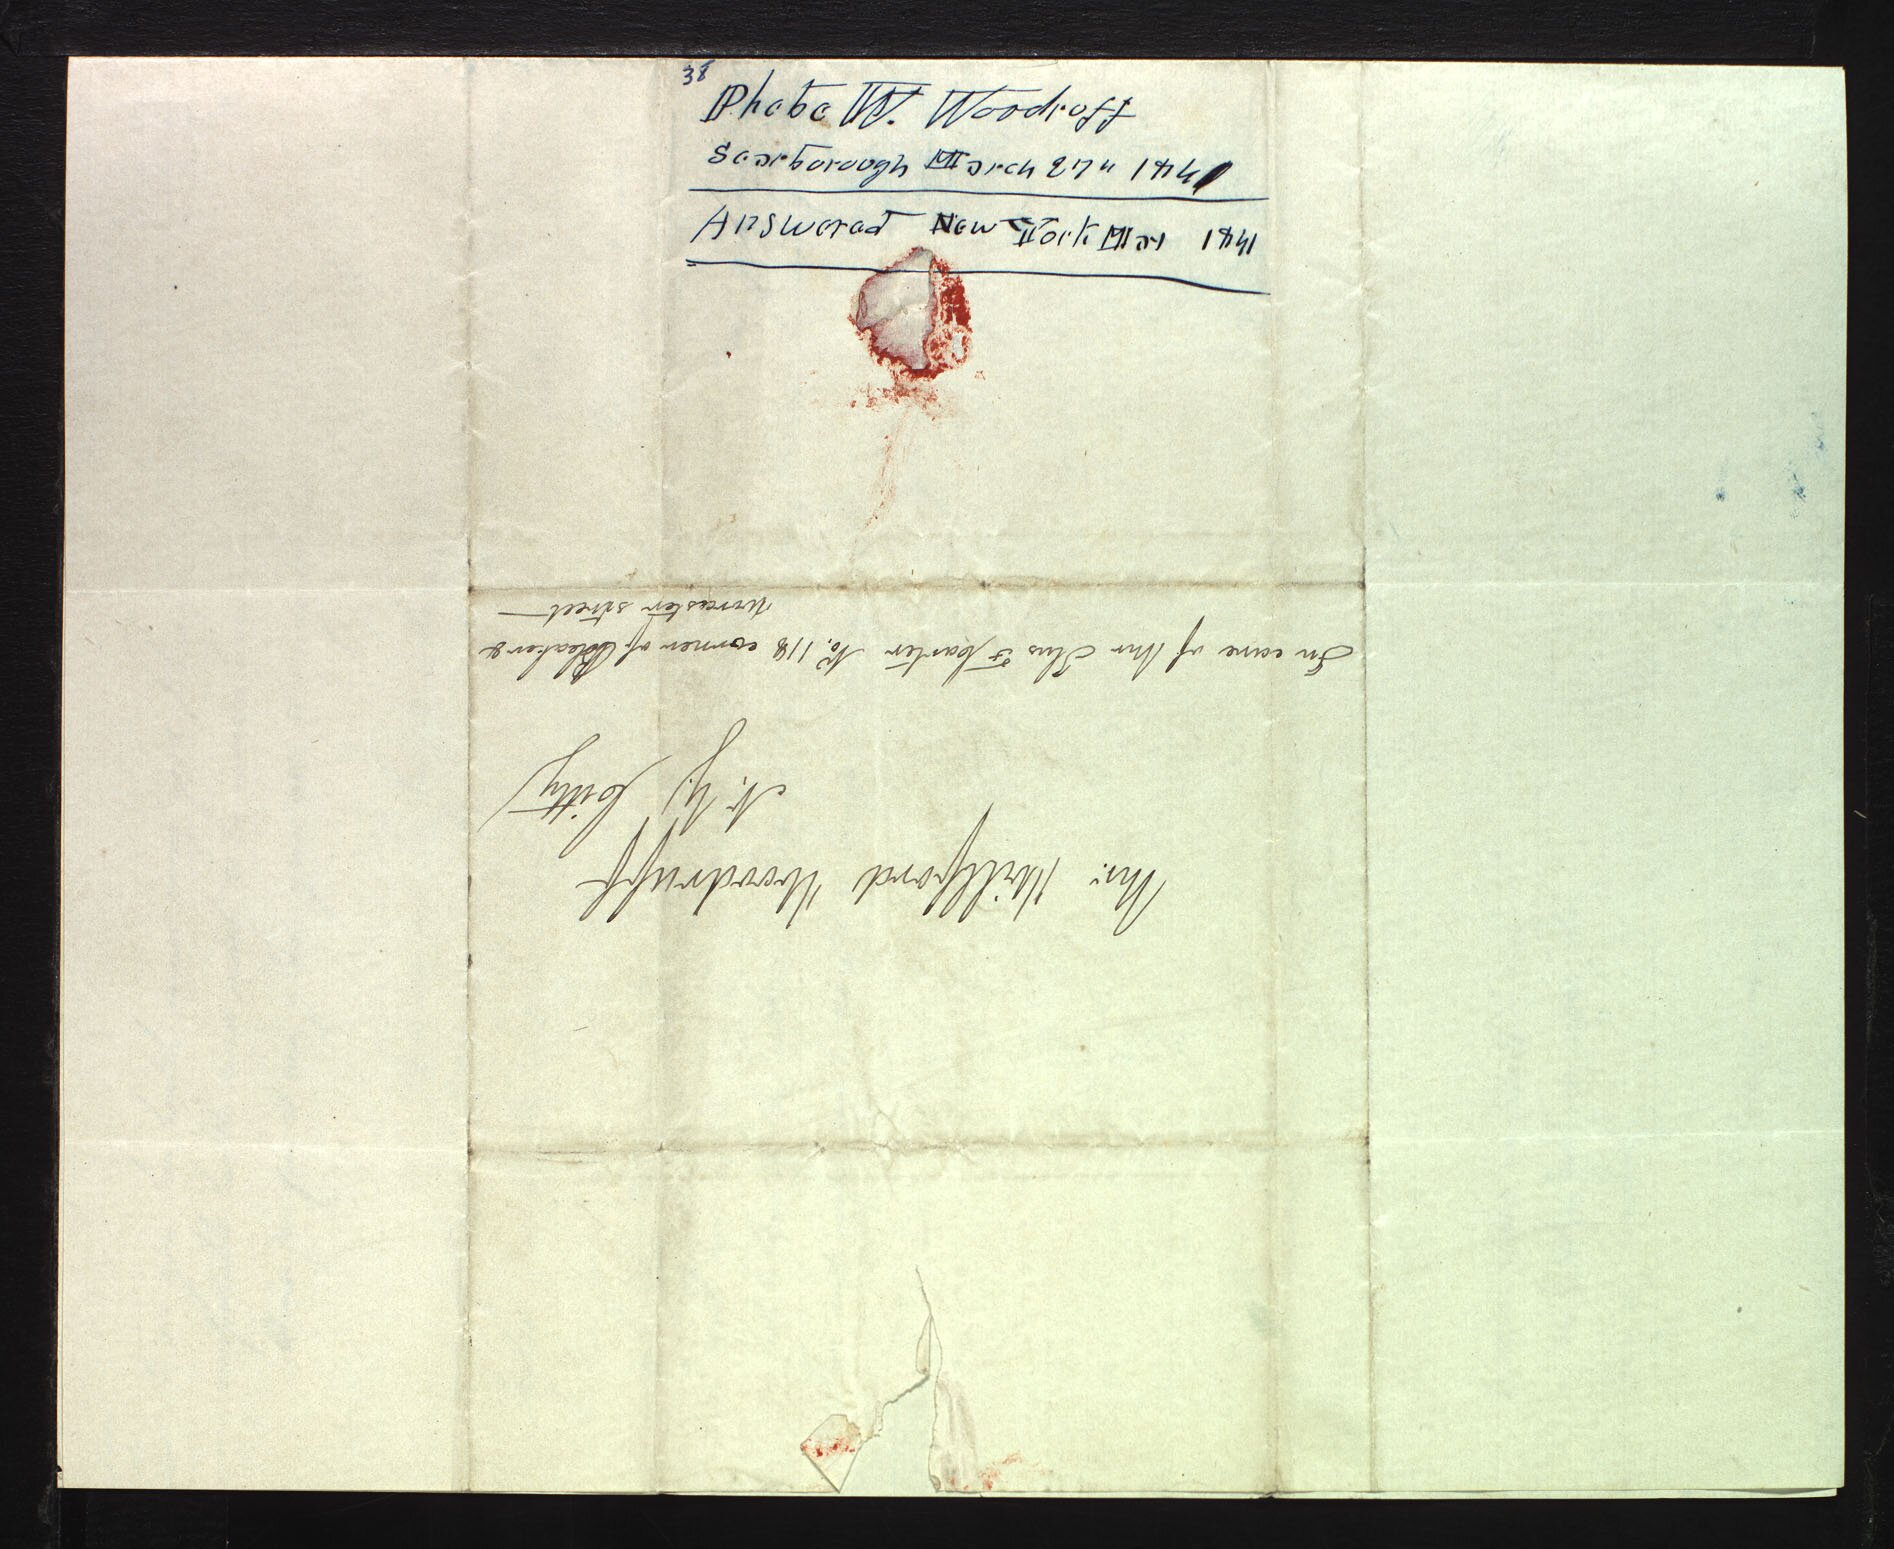 38
Phebe W. Woodruff
Scarborough March 27th 1841
Answered New York Mar 1841
Mr. Willford Woodruff
N. Y. Citty
In care of Mr Thos Carter No. 118 corner of Bleaker &
Worcester street